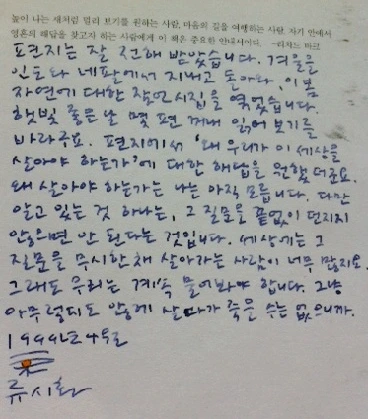 높이 나는 새처럼 멀리 보기를 원하는 사람, 마음의 길을 여행하는 사람, 자기 안에서
영혼의 해답을 찾고자 하는 사람에게 이 책은 중요한 안내서이다. -리처드 바크
편지는 잘 전해 받았습니다. 겨울을
인도와 네팔에서 지내고 돌아와, 이 봄
자연에 대한 잠언시집을 엮었습니다.
햇빛 좋은 날 몇 편 꺼내 읽어 보기를
바라구요. 편지에서 '왜 우리가 이 세상을
살아야 하는가'에 대한 해답을 원했더군요.
왜 살아야 하는가는 나는 아직 모릅니다. 다만
알고 있는 것 하나는, 그 질문을 끝없이 던지지
않으면 안 된다는 것입니다. 세상에는 그
질문을 무시한 채 살아가는 사람이 너무 많지요.
그래도 우리는 계속 물어봐야 합니다. 그냥
아무렇지도 않게 살다가 죽을 수는 없으니까.
1999년 4월
류시화